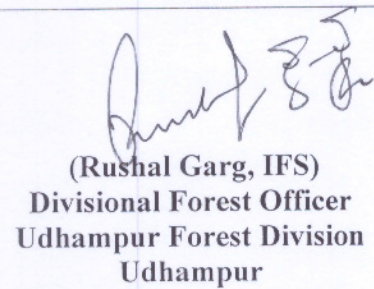 (Rushal Garg, IFS)
Divisional Forest Officer
Udhampur Forest Division
Udhampur